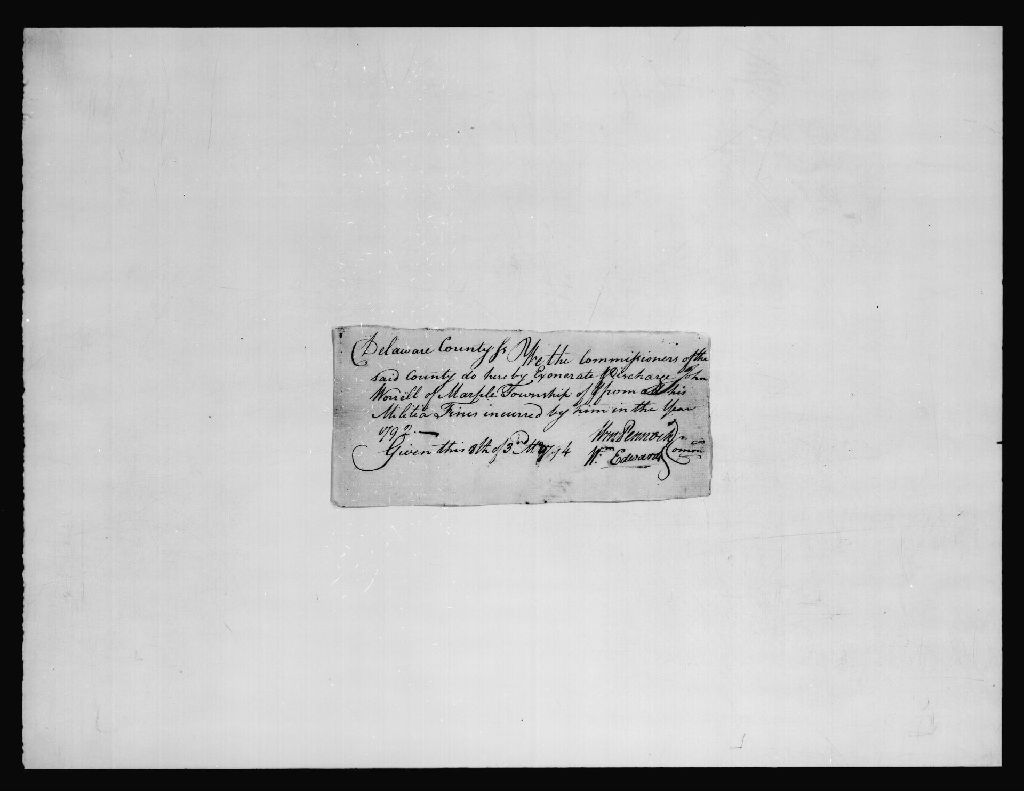 Delaware County ss We the Commissioners of the
said County do hereby Exonerate & Discharge John
Worrell of Marple Township of & from all his
Militia Fines incurred by him in the Year
1792.—
Given this 8th of 3rd Mo 1794
Wm Pennock
Wm Edwards
Comrs